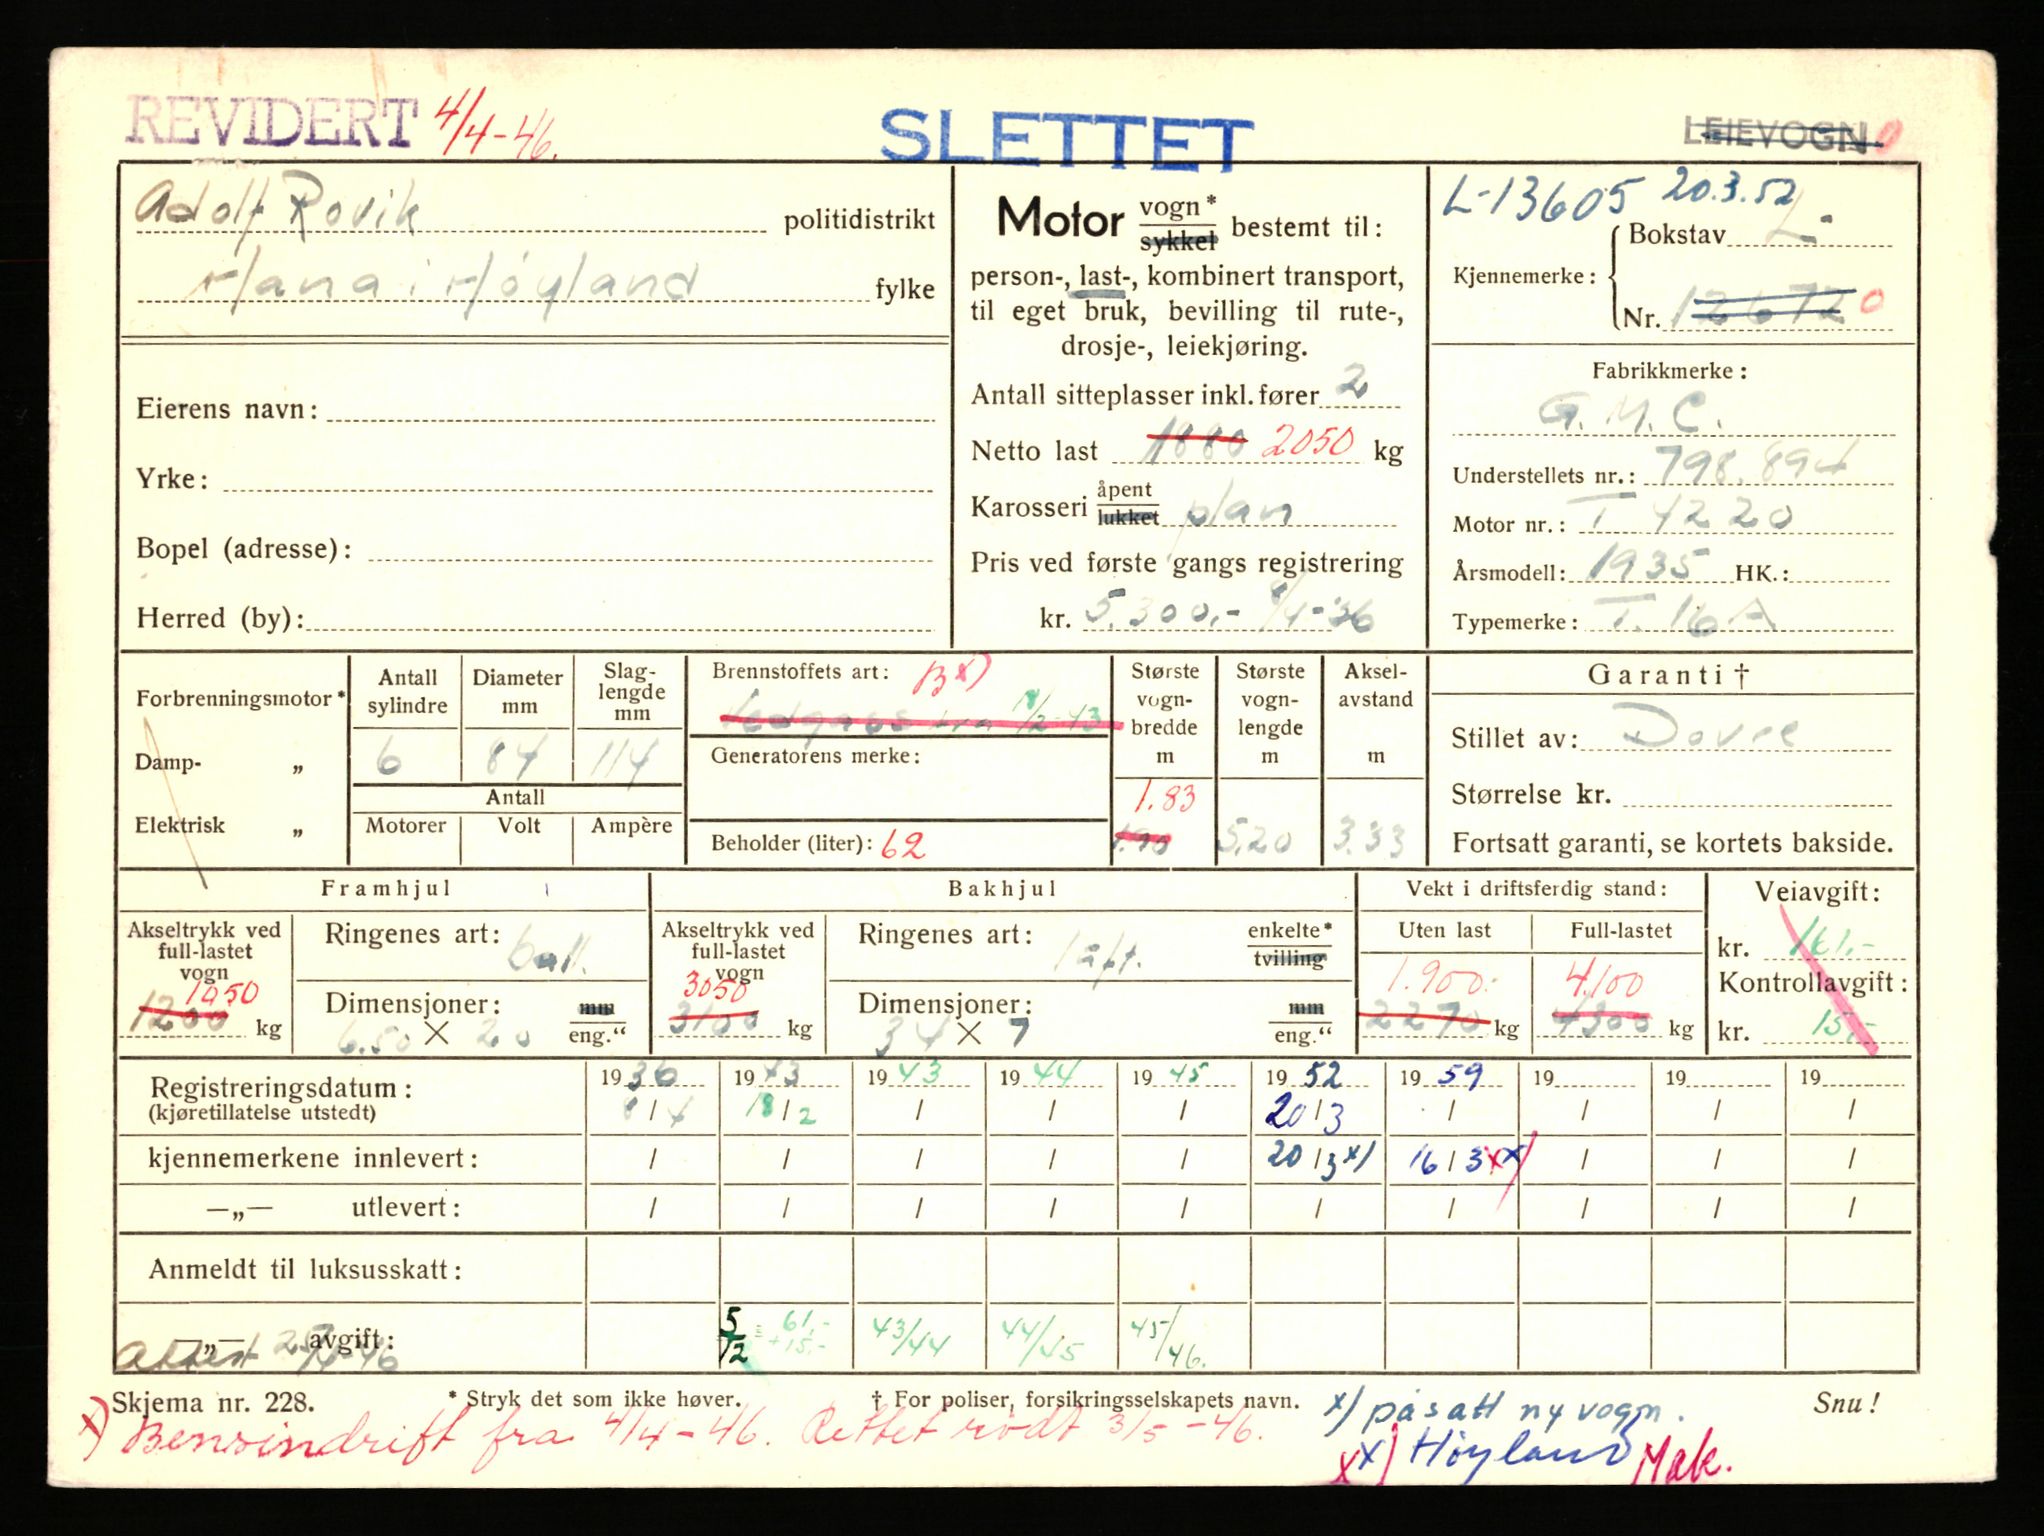 REVIDERT 4/4-46.
SLETTET
LEIEVOGN 0
Adolf Rovik politidistrikt
Hana i Høyland fylke
Eierens navn:
Yrke:
Bopel (adresse):
Herred (by):
Motor vogn* sykkel bestemt til:
person-, last-, kombinert transport,
til eget bruk, bevilling til rute-,
drosje-, leiekjøring.
Antall sitteplasser inkl. fører 2
Netto last 1880 2050 kg
Karosseri åpent lukket plan
Pris ved første gangs registrering
kr. 5.300,- 8/4-36
L-13605 20.3.52
Kjennemerke: Bokstav L-
Nr. 12672 0
Fabrikkmerke:
G.M.C.
Understellets nr.: 798.894
Motor nr.: T 4220
Årsmodell: 1935 HK.:
Typemerke: T. 16 A
Forbrenningsmotor*
Damp- „
Elektrisk „
Antall sylindre
6
Diameter mm
84
Slag-lengde mm
114
Antall
Motorer Volt Ampère
Brennstoffets art: B x)
18/2-43
Generatorens merke:
Beholder (liter): 62
Største vogn-bredde m
1.83
1.90
Største vogn-lengde m
5.20
Aksel-avstand m
3.33
Garanti †
Stillet av: Dovre
Størrelse kr.
Fortsatt garanti, se kortets bakside.
Framhjul
Akseltrykk ved full-lastet vogn
1050
1200 kg
Ringenes art: ball.
Dimensjoner: mm
6.50 × 20 eng.“
Bakhjul
Akseltrykk ved full-lastet vogn
3050
3100 kg
Ringenes art: luft. enkelte* tvilling
Dimensjoner: mm
34 × 7 eng.“
Vekt i driftsferdig stand:
Uten last Full-lastet
1.900.- 4.100
2270 kg 4300 kg
Veiavgift:
kr. 161.-
Kontrollavgift:
kr. 15,-
Registreringsdatum: 1936 1943 1943 1944 1945 1952 1959 19 19 19
(kjøretillatelse utstedt) 8/4 18/2 / / / 20/3 / / / /
kjennemerkene innlevert: / / / / / 20/3 x) 16/3 xx) / / /
—„— utlevert: / / / / / / / / / /
Anmeldt til luksusskatt:
—„— avgift: 5/12 61,- + 15,- 43/44 44/45 45/46.
Attest 25/4-46
Skjema nr. 228. * Stryk det som ikke høver. † For poliser, forsikringsselskapets navn. Snu!
x) påsatt ny vogn.
x) Bensindrift fra 4/4-46. Rettet rødt 3/5-46.
xx) Høyland Mak.